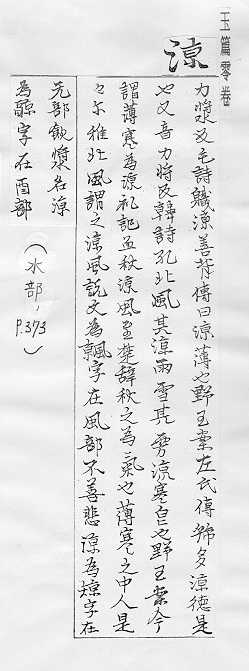 玉篇零卷
涼
力漿反毛詩職涼善背傳曰涼薄也野王案左氏傳虢多涼德是
也又音力將反韓詩北風其涼雨雪其雱涼寒皃也野王案今
謂薄寒為涼礼記孟秋涼風至楚辞秋之為氣也薄寒之中人是
々尒雅北風謂之涼風說文為䬅字在風部不善悲涼為㹁字在
旡部飲漿名涼
為䣼字在酉部
(水部,
P.373)